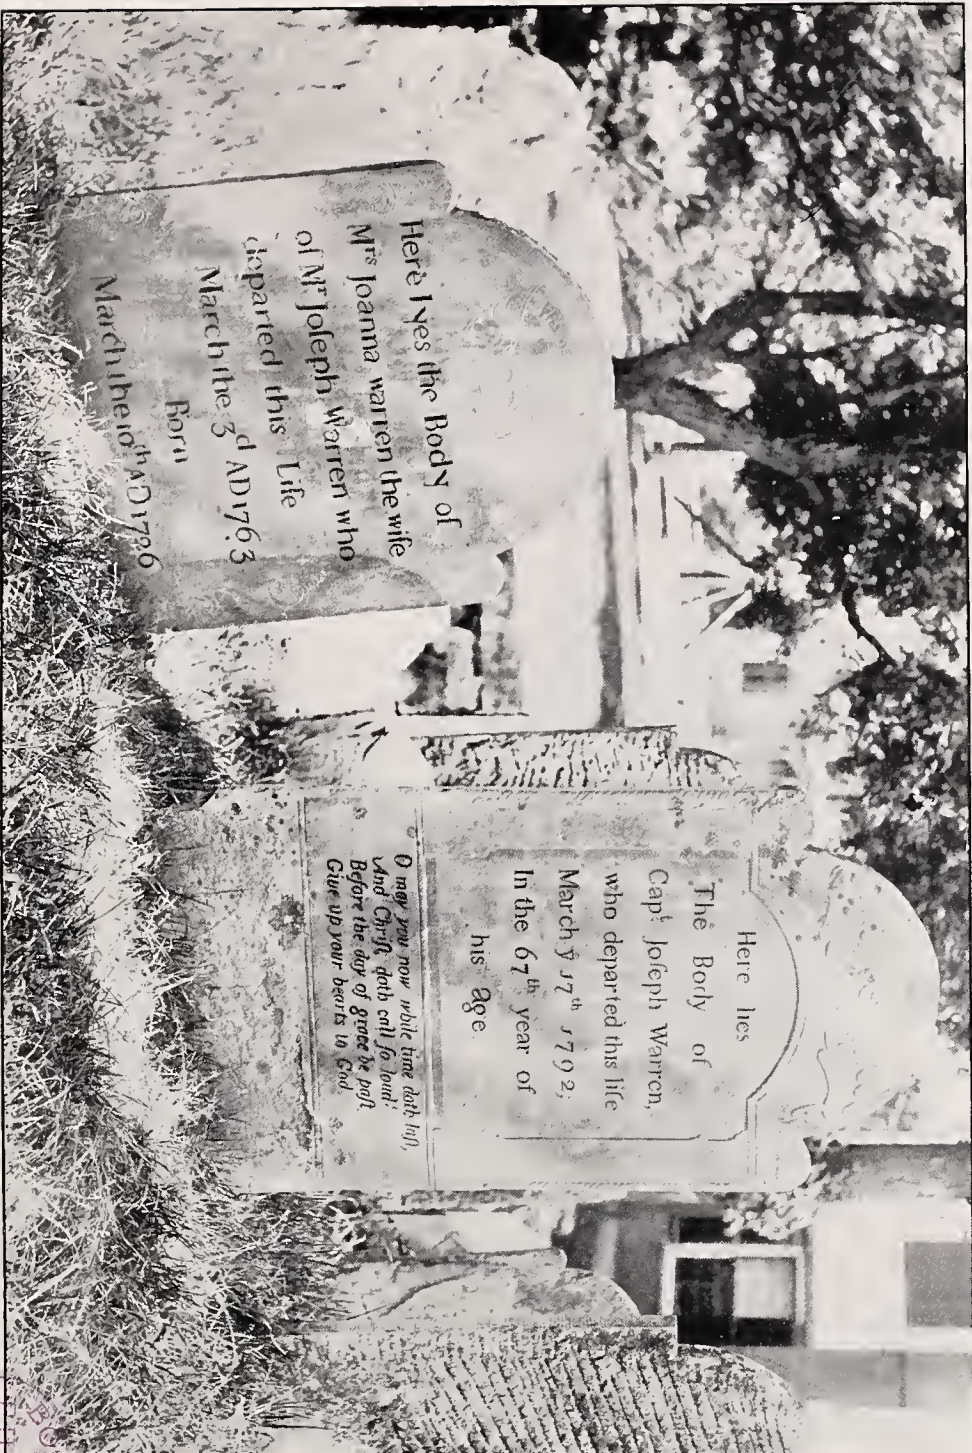 Here lyes the Body of
Mrs Joanna warren the wife
of Mr Joſeph Warren who
departed this Life
March the 3d AD 1763
Born
March the 10th AD 1726
Here lies
The Body of
Capt Joſeph Warren,
who departed this life
March ẙ 17th 1792;
In the 67th year of
his age
O may you now while time doth laſt,
And Chriſt doth call ſo loud:
Before the day of grace be paſt
Give up your hearts to God